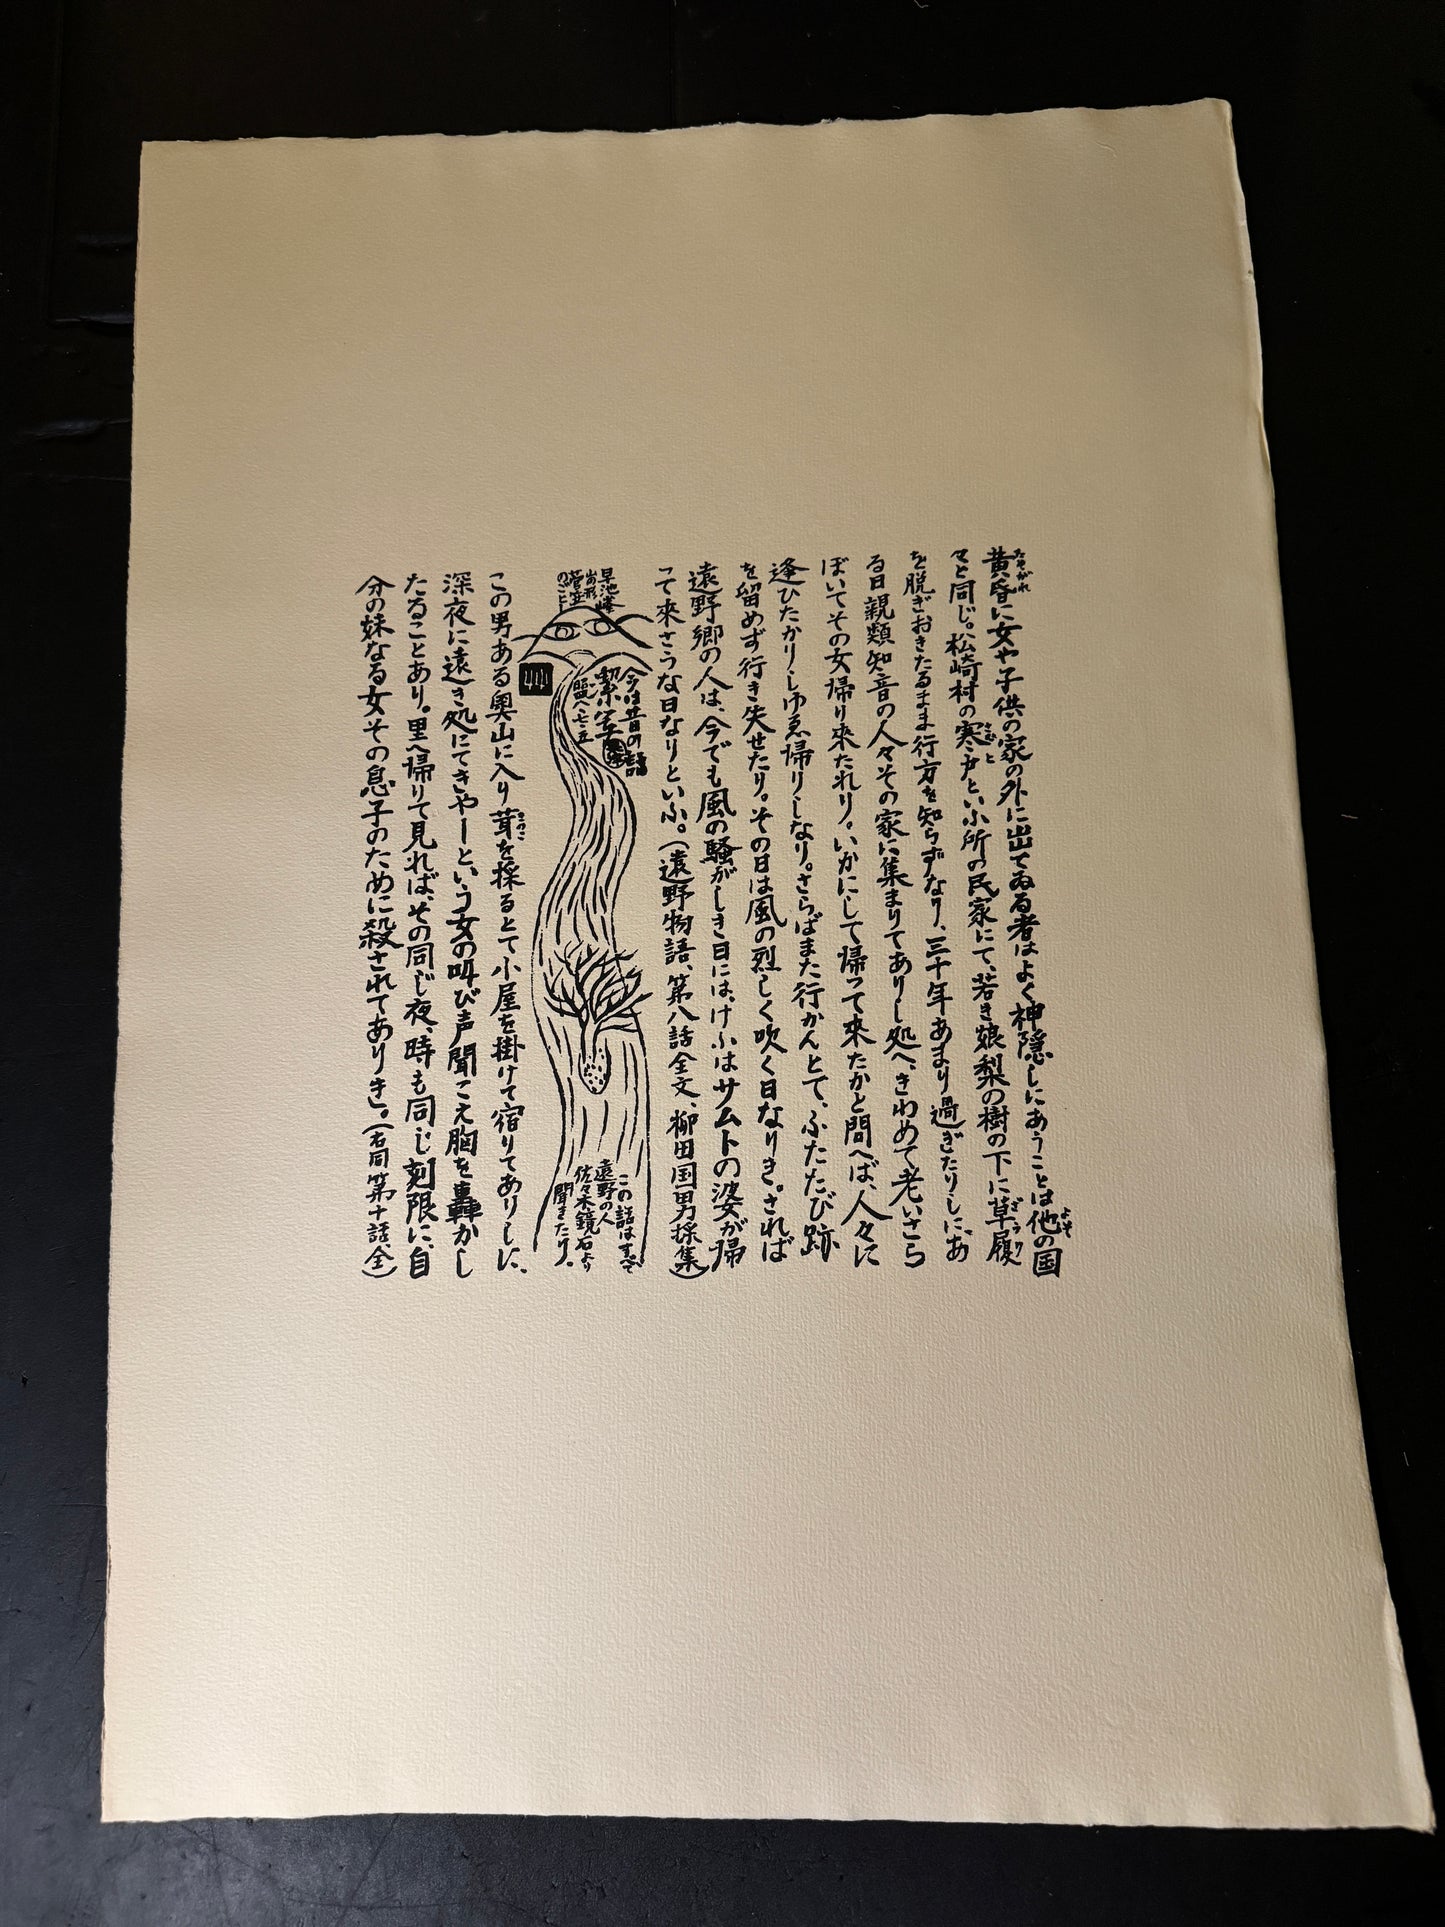 黄昏に女や子供の家の外に出てゐる者はよく神隠しにあうことは他の国
たそがれ
よそ
々と同じ。松崎村の寒戸といふ所の民家にて、若き娘梨の樹の下に草履
さむと
ざうり
を脱ぎおきたるまま行方を知らずなり、三十年あまり過ぎたりしにあ
る日親類知音の人々その家に集まりてありし処へ、きわめて老いさら
ぼいてその女帰り来たれり。いかにして帰って来たかと問へば、人々に
逢ひたかりしゆゑ帰りしなり。さらばまた行かんとて、ふたたび跡
を留めず行き失せたり。その日は風の烈しく吹く日なりき。されば
遠野郷の人は、今でも風の騒がしき日には、けふはサムトの婆が帰
って来さうな日なりといふ。（遠野物語、第八話全文、柳田国男採集）
早池峰
山の形
菅笠
のごとし
今は昔の話
この話はすべて
遠野の人
佐々木鏡石より
聞きたり。
この男ある奥山に入り茸を採るとて小屋を掛けて宿りてありしに、
きのこ
深夜に遠き処にてきやーという女の叫び声聞こえ胸を轟かし
たることあり。里へ帰りて見れば、その同じ夜、時も同じ刻限に、自
分の妹なる女その息子のために殺されてありき。（右同第十話、全）